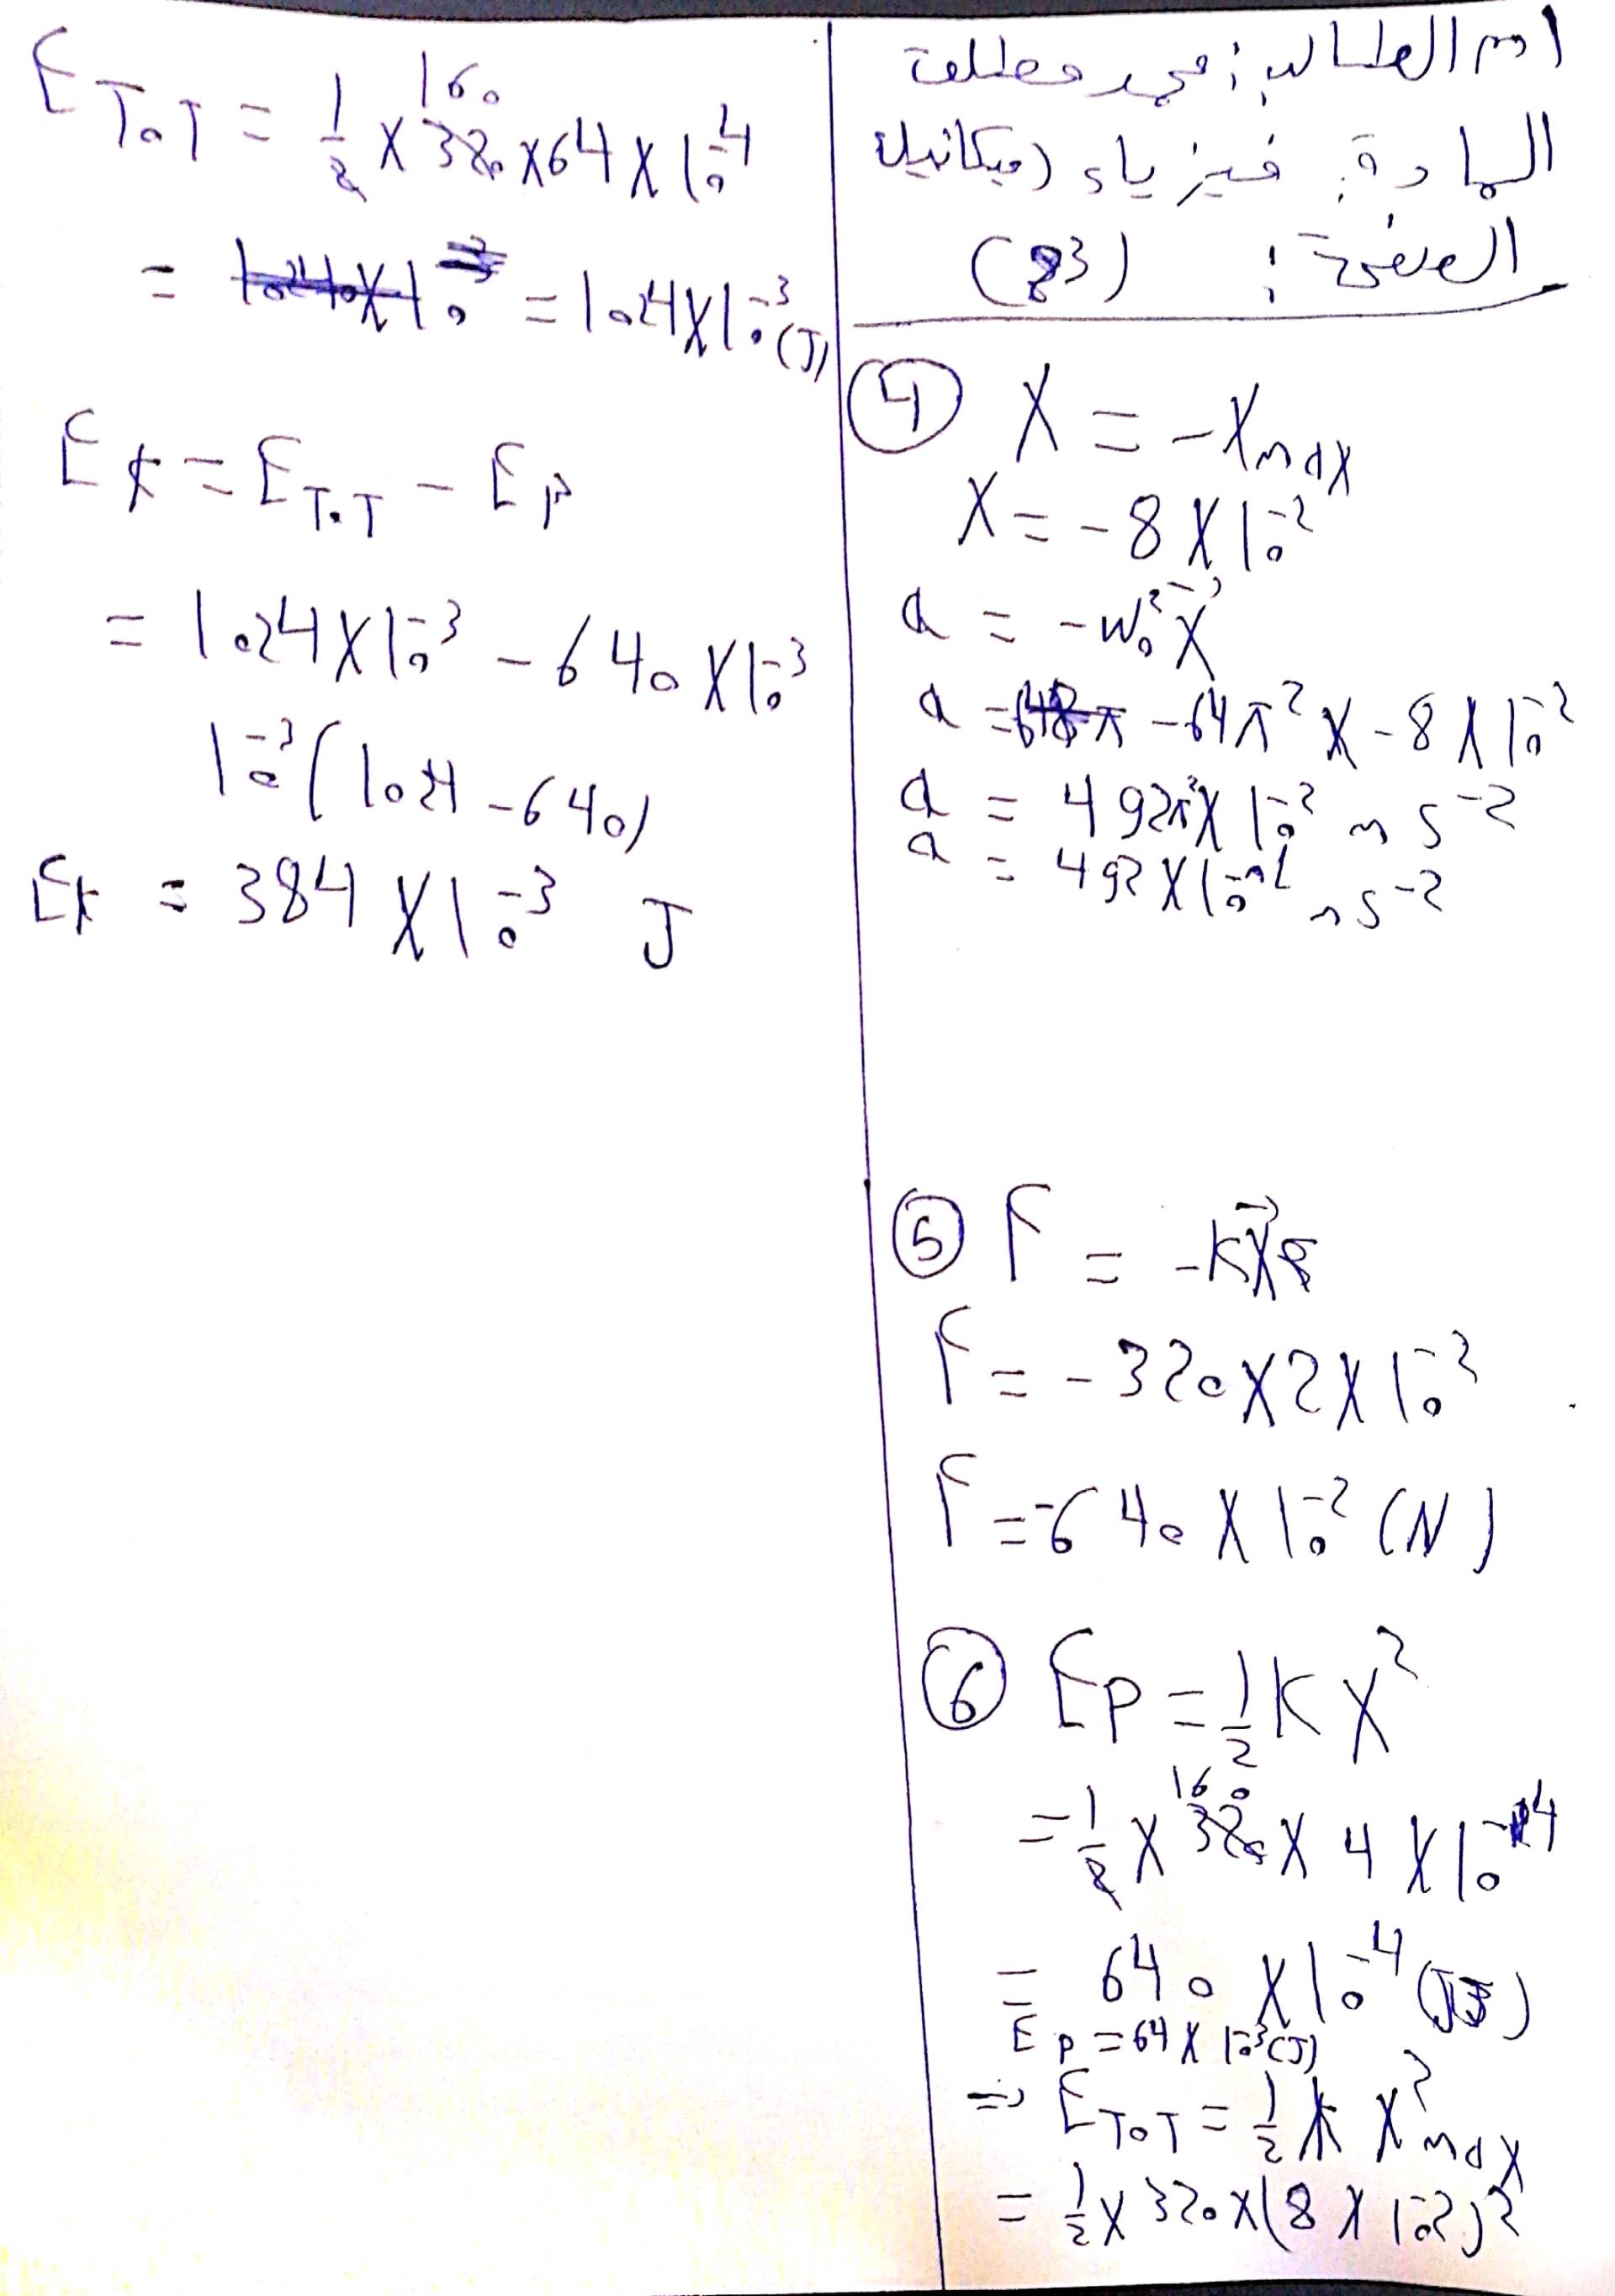 اسم الطالب: محمد مطلعة
المادة: فيزياء (ميكانيك
الصفحة: (3)
④ X = -Xmax
X = -8 X 10⁻²
a = -w₀² x⃗
a = -64π² X -8 X 10⁻²
a = 492π² X 10⁻² m s⁻²
a = 492 X 10⁻¹ m s⁻²
⑤ F = -k x⃗
F = -320 X 2 X 10⁻²
F = -640 X 10⁻² (N)
⑥ Ep = 1/2 k X²
160
= 1/2 X 320 X 4 X 10⁻⁴
= 640 X 10⁻⁴ (J)
Ep = 64 X 10⁻³ (J)
⇒ ETOT = 1/2 k X²max
= 1/2 X 320 X (8 X 10⁻²)²
160
ETOT = 1/2 X 320 X 64 X 10⁻⁴
= 1024 X 10⁻³ (J)
Ek = ETOT - Ep
= 1024 X 10⁻³ - 640 X 10⁻³
10⁻³ (1024 - 640)
Ek = 384 X 10⁻³ J